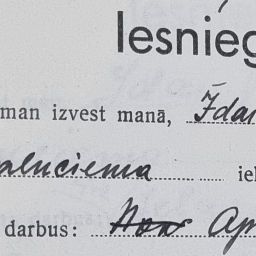 Iesnieg
man izvest manā, Īdar
alnciema iel
darbus: Ap